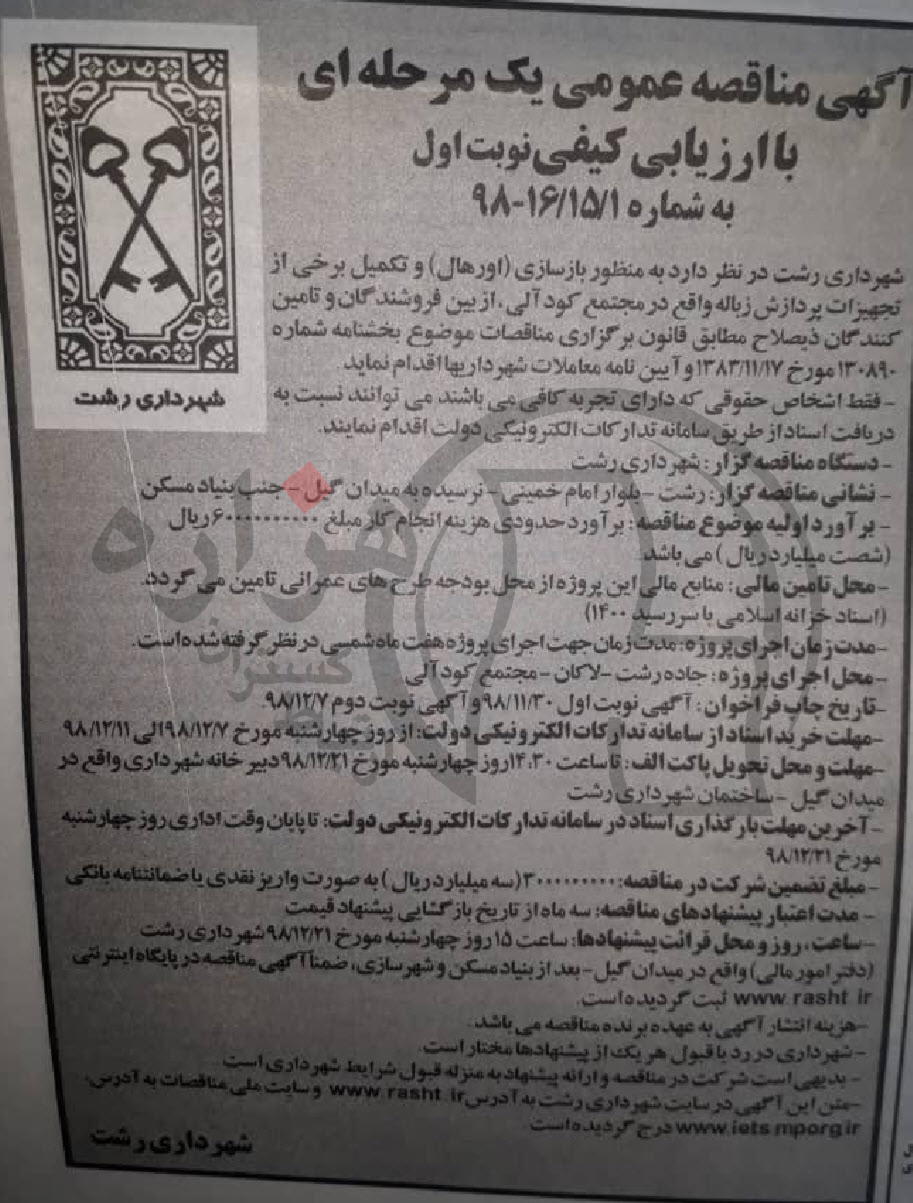 آگهی مناقصه عمومی یک مرحله ای
با ارزیابی کیفی نوبت اول
به شماره ۹۸-۱۶/۱۵/۱
شهرداری رشت
شهرداری رشت در نظر دارد به منظور بازسازی (اورهال) و تکمیل برخی از
تجهیزات پردازش زباله واقع در مجتمع کود آلی، از بین فروشندگان و تامین
کنندگان ذیصلاح مطابق قانون برگزاری مناقصات موضوع بخشنامه شماره
۱۳۰۸۹۰ مورخ ۱۳۸۳/۱۱/۱۷ و آیین نامه معاملات شهرداریها اقدام نماید
- فقط اشخاص حقوقی که دارای تجربه کافی می باشند می توانند نسبت به
دریافت اسناد از طریق سامانه تدارکات الکترونیکی دولت اقدام نمایند.
- دستگاه مناقصه گزار: شهرداری رشت
- نشانی مناقصه گزار: رشت - بلوار امام خمینی - نرسیده به میدان گیل - جنب بنیاد مسکن
- برآورد اولیه موضوع مناقصه: برآورد حدودی هزینه انجام کار مبلغ ۶۰۰۰۰۰۰۰۰۰۰ ریال
(شصت میلیارد ریال) می باشد.
- محل تامین مالی: منابع مالی این پروژه از محل بودجه طرح های عمرانی تامین می گردد.
(اسناد خزانه اسلامی با سررسید ۱۴۰۰)
- مدت زمان اجرای پروژه: مدت زمان جهت اجرای پروژه هفت ماه شمسی در نظر گرفته شده است.
- محل اجرای پروژه: جاده رشت - لاکان - مجتمع کود آلی
- تاریخ چاپ فراخوان: آگهی نوبت اول ۹۸/۱۱/۳۰ و آگهی نوبت دوم ۹۸/۱۲/۷
- مهلت خرید اسناد از سامانه تدارکات الکترونیکی دولت: از روز چهارشنبه مورخ ۹۸/۱۲/۷ الی ۹۸/۱۲/۱۱
- مهلت و محل تحویل پاکت الف: تا ساعت ۱۴:۳۰ روز چهارشنبه مورخ ۹۸/۱۲/۲۱ دبیرخانه شهرداری واقع در
میدان گیل - ساختمان شهرداری رشت
- آخرین مهلت بارگذاری اسناد در سامانه تدارکات الکترونیکی دولت: تا پایان وقت اداری روز چهارشنبه
مورخ ۹۸/۱۲/۲۱
- مبلغ تضمین شرکت در مناقصه: ۳۰۰۰۰۰۰۰۰۰ (سه میلیارد ریال) به صورت واریز نقدی یا ضمانتنامه بانکی
- مدت اعتبار پیشنهادهای مناقصه: سه ماه از تاریخ بازگشایی پیشنهاد قیمت
- ساعت، روز و محل قرائت پیشنهادها: ساعت ۱۵ روز چهارشنبه مورخ ۹۸/۱۲/۲۱ شهرداری رشت
(دفتر امور مالی) واقع در میدان گیل - بعد از بنیاد مسکن و شهرسازی، ضمناً آگهی مناقصه در پایگاه اینترنتی
www.rasht.ir ثبت گردیده است.
- هزینه انتشار آگهی به عهده برنده مناقصه می باشد.
- شهرداری در رد یا قبول هر یک از پیشنهادها مختار است.
- بدیهی است شرکت در مناقصه و ارائه پیشنهاد به منزله قبول شرایط شهرداری است
- متن این آگهی در سایت شهرداری رشت به آدرس www.rasht.ir و سایت ملی مناقصات به آدرس،
www.iets.mporg.ir درج گردیده است
شهرداری رشت
هزاره